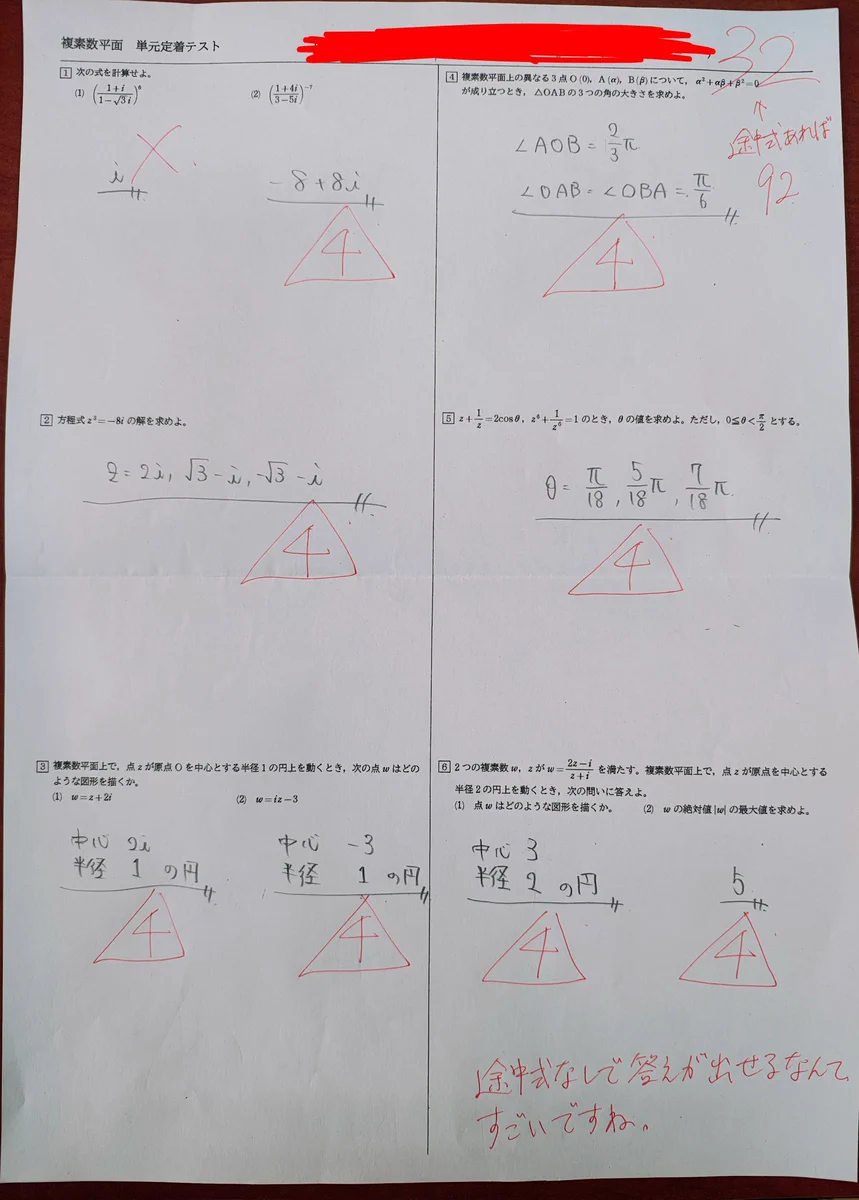 複素数平面 単元定着テスト
32
↑
途中式あれば
92
1 次の式を計算せよ。
(1) ((1+i)/(1-√3i))^6
(2) ((1+4i)/(3-5i))^-7
i
-8+8i
4
2 方程式 z³=-8i の解を求めよ。
z=2i, √3-i, -√3-i
4
3 複素数平面上で,点 z が原点 O を中心とする半径 1 の円上を動くとき,次の点 w はどの
ような図形を描くか。
(1) w=z+2i
(2) w=iz-3
中心 2i
半径 1 の円
4
中心 -3
半径 1 の円
4
4 複素数平面上の異なる 3 点 O (0), A (α), B (β) について, α²+αβ+β²=0
が成り立つとき, △OAB の 3 つの角の大きさを求めよ。
∠AOB = 2/3 π
∠OAB = ∠OBA = π/6
4
5 z+1/z=2cosθ, z⁶+1/z⁶=1 のとき, θ の値を求めよ。ただし, 0≦θ<π/2 とする。
θ = π/18, 5/18 π, 7/18 π
4
6 2 つの複素数 w, z が w=(2z-i)/(z+i) を満たす。複素数平面上で,点 z が原点を中心とする
半径 2 の円上を動くとき,次の問いに答えよ。
(1) 点 w はどのような図形を描くか。
(2) w の絶対値 |w| の最大値を求めよ。
中心 3
半径 2 の円
4
5
4
途中式なしで答えが出せるなんて、
すごいですね。